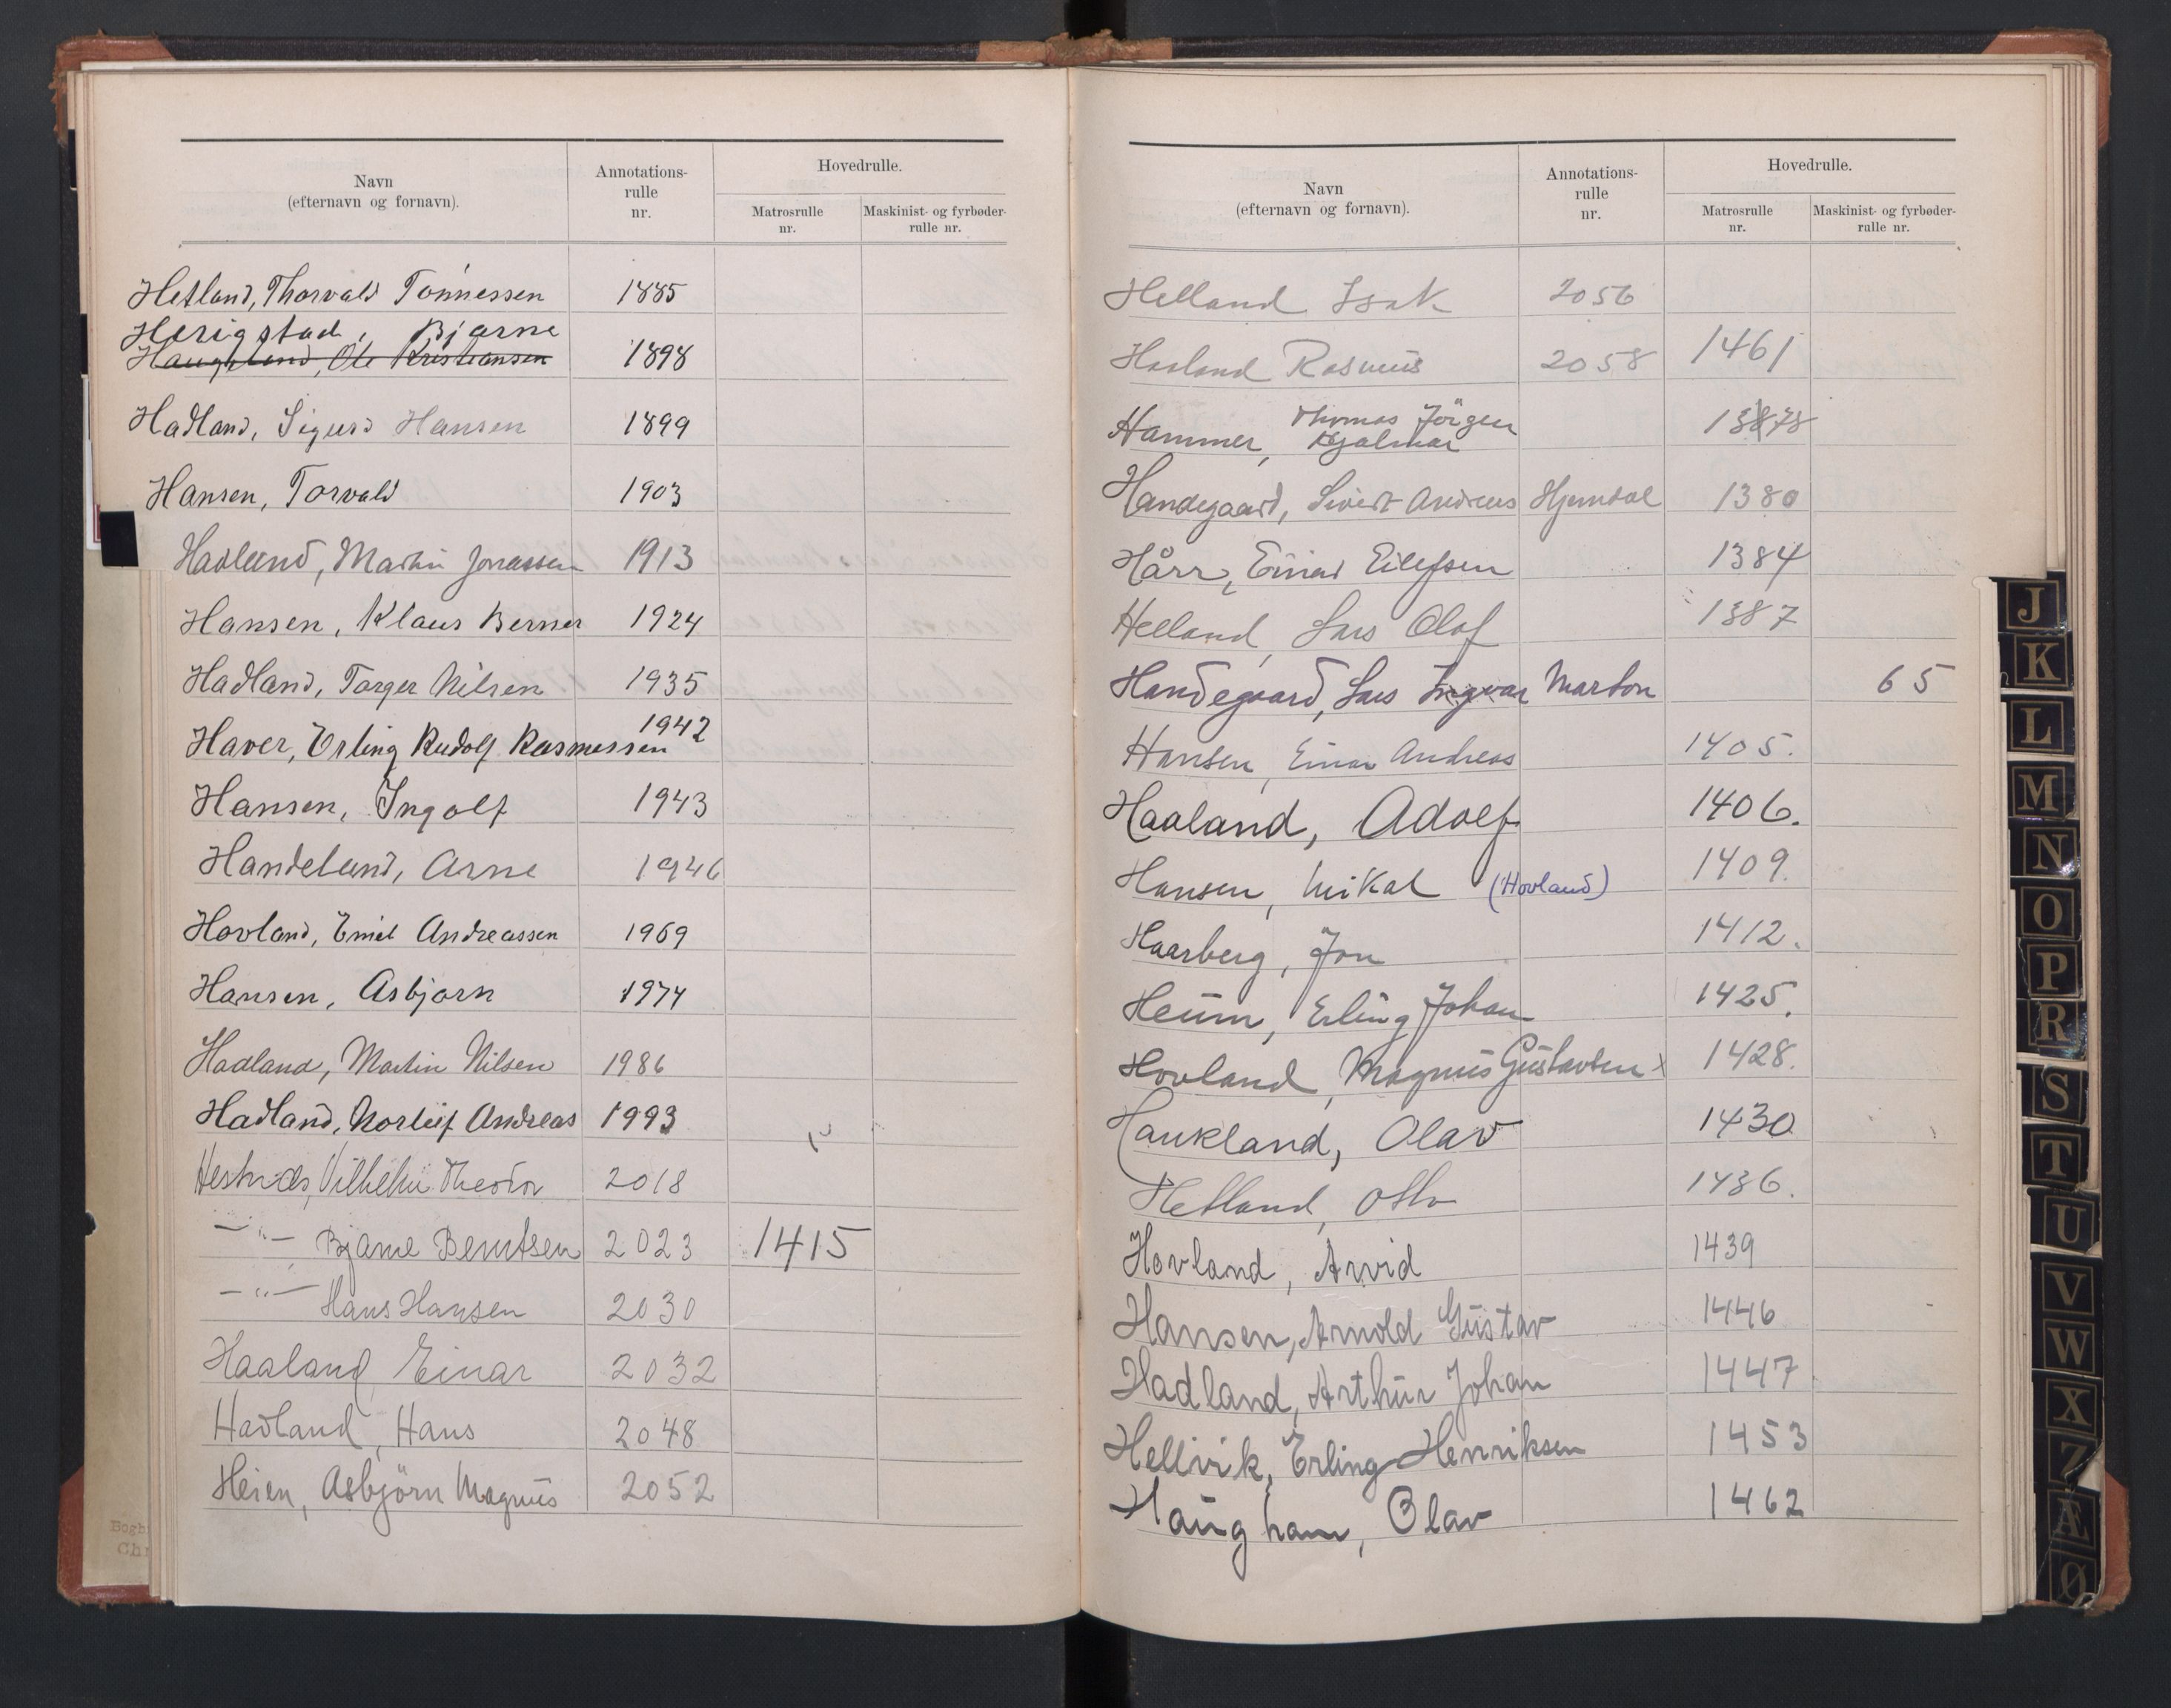 Navn
(efternavn og fornavn).
Annotations-
rulle
nr.
Hovedrulle.
Matrosrulle
nr.
Maskinist- og fyrbøder-
rulle nr.
Hetland, Thorvald Tonnessen 1885
Hærigstad, Bjarne
Haughland, Ole Kristiansen 1898
Hadland, Sigurd Hansen 1899
Hansen, Torvald 1903
Hadland, Martin Jonassen 1913
Hansen, Klaus Berner 1924
Hadland, Torger Nilsen 1935
Haver, Erling Rudolf Rasmussen 1942
Hansen, Ingolf 1943
Handeland, Arne 1946
Hovland, Emil Andreassen 1969
Hansen, Asbjørn 1974
Hadland, Martin Nilsen 1986
Hadland, Norleif Andreas 1993
Vilhelm Theodor 2018
—"— Bjarne Berntsen 2023 1415
—"— Hans Hansen 2030
Haaland, Einar 2032
Hadland, Hans 2048
Heien, Asbjörn Magnus 2052
Bogb
Ch
Navn
(efternavn og fornavn).
Annotations-
rulle
nr.
Hovedrulle.
Matrosrulle
nr.
Maskinist- og fyrbøder-
rulle nr.
Helland Isak 2056
Rasmus 2058 1461
Thomas Jörgen
Hammer, Hjalmar
Handegaard, Sivert Andreas Hjemdal 1380
Hårr, Einar Eilefsen 1384
Helland, Lars Olaf 1387
Handegaard, Lars Ingvar Marton 65
Hansen, Einar Andreas 1405.
Haaland, Adolf 1406.
Hansen, Mikal (Hovland) 1409.
Haarberg, Jon 1412.
Heum, Erling Johan 1425.
Hovland, Magnus Gustavsen x 1428.
Haukland, Olav 1430
Hetland, Otto 1436.
Hovland, Arvid 1439
Hansen, Arnold Gustav 1446
Hadland, Arthur Johan 1447
Hellvik, Erling Henriksen 1453
Haugham, Olav 1462
J
K
L
M
N
O
P
R
S
T
U
V
W
X
Z
Æ
Ø